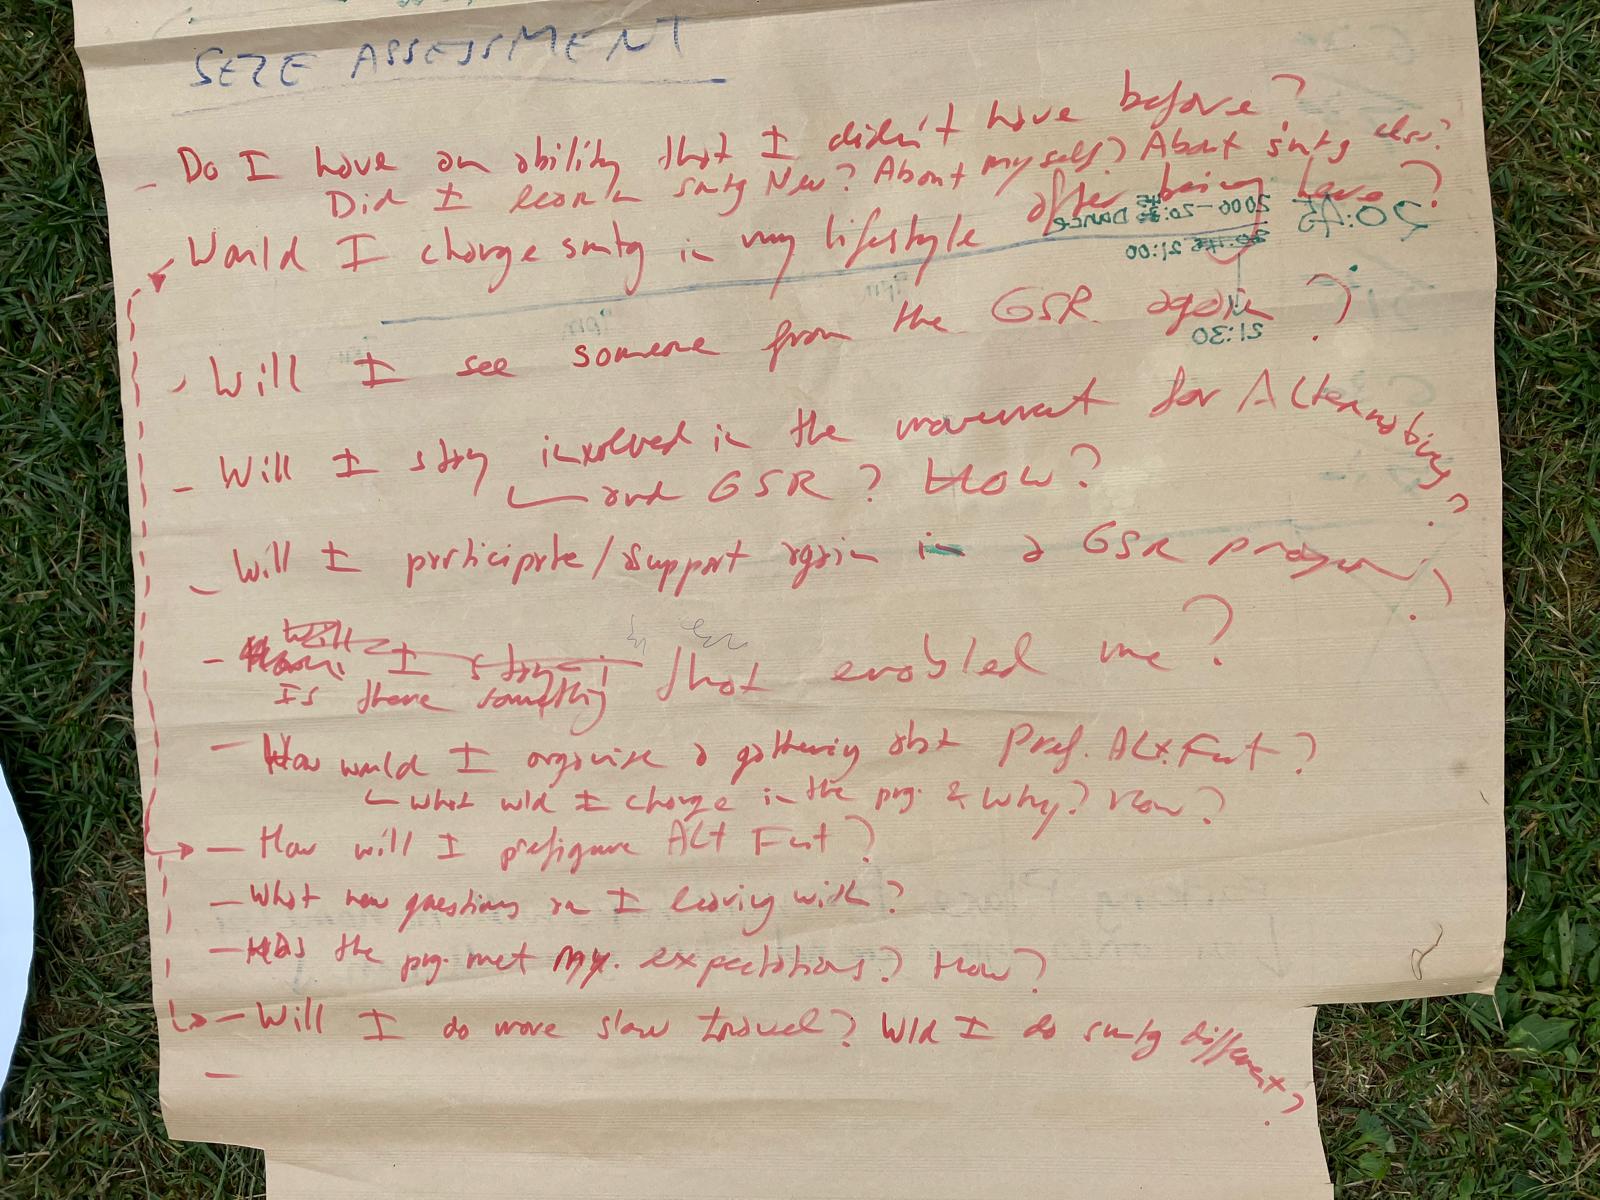 SEZE ASSESSMENT
- Do I have an ability that I didn't have before?
Did I learn smtg New? About myself? About smtg else?
Would I change smtg in my lifestyle after being here?
- Will I see someone from the GSR again?
- Will I stay involved in the movement for Alternatives?
and GSR? How?
- Will I participate/support again in a GSR program?
- Is there something that enabled me?
- How would I organise a gathering abt Pref. Alt. Fut?
what wld I change in the prg. & why? How?
- How will I prefigure Alt Fut?
- What new questions am I leaving with?
- Has the prg. met my. expectations? How?
- Will I do more slow travel? Wld I do smtg different?
-
20:45
Dance
21:00
21:30
9pm